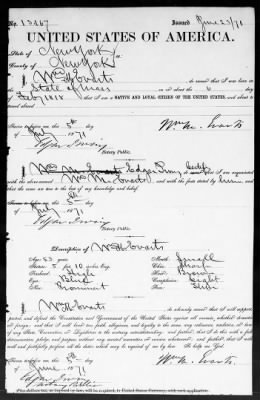 No. 13467 Issued June 23/71
UNITED STATES OF AMERICA.
State of New York
County of New York
I, Wm M Evarts do swear that I was born in
State of Mass on or about the 6 day
of Feby 1818 NATIVE AND LOYAL CITIZEN OF THE UNITED STATES, and about to
travel abroad.
Sworn to before me this 5th day
of 1871 Wm M. Evarts
Notary Public.
I, certify that I am acquainted
with Wm M Evarts and with the facts stated by him and
that the same are true to the best of my knowledge and belief.
Sworn to before me this 5th day
of 1871
Notary Public.
Description of W M Evarts
Age: 53 years Mouth: Small
Stature: 5 feet 10 inches Eng. Chin: Sharp
Forehead: High Hair: Brown
Eyes: Blue Complexion: Light
Nose: Prominent Face: Thin
I, W M Evarts do solemnly swear that I will support,
protect, and defend the Constitution and Government of the United States against all enemies, whether domestic
or foreign; and that I will bear true faith, allegiance, and loyalty to the same, any ordinance, resolution, or law
of any State, Convention, or Legislature to the contrary notwithstanding; and further, that I do this with a full
determination, pledge, and purpose, without any mental reservation or evasion whatsoever; and further, that I will
well and faithfully perform all the duties which may be required of me by law: So help me God.
Sworn to before me this 5th day
of June 1871 Wm M. Evarts
Notary Public